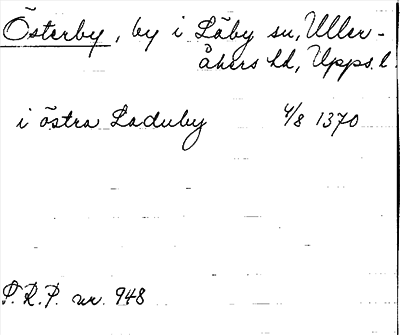 Österby, by i Läby sn, Uller-
åkers hd, Upps. l.
i östra Laduby 4/8 1370
P.R.P. nr. 948